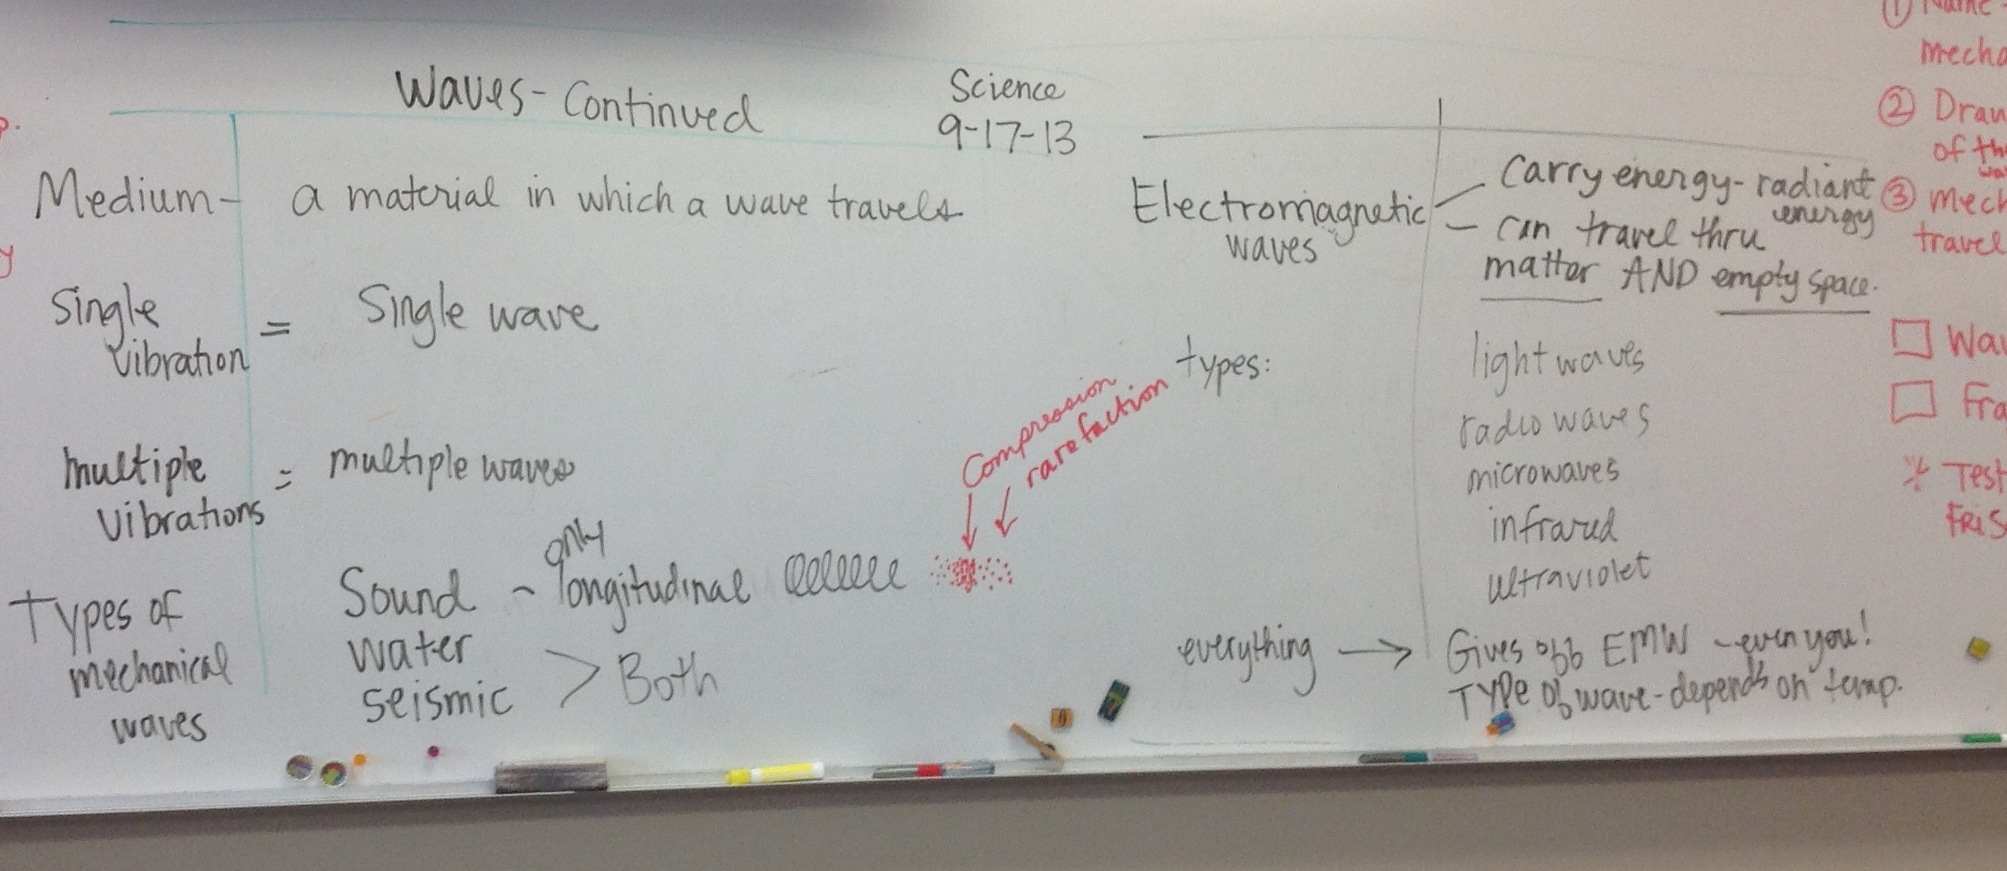 Waves - Continued
Science
9-17-13
Medium - a material in which a wave travels
Single vibration = Single wave
multiple vibrations = multiple waves
Types of mechanical waves
Sound - only longitudinal
water
seismic > Both
Compression
rarefaction
Electromagnetic waves
Carry energy - radiant energy
- can travel thru
matter AND empty space.
types:
light waves
radio waves
microwaves
infrared
ultraviolet
everything → Gives off EMW - even you!
TYPe of wave - depends on temp.
① Name
mecha
② Draw
of the
③ Mech
travel
Wav
Fra
* Test
FRIS